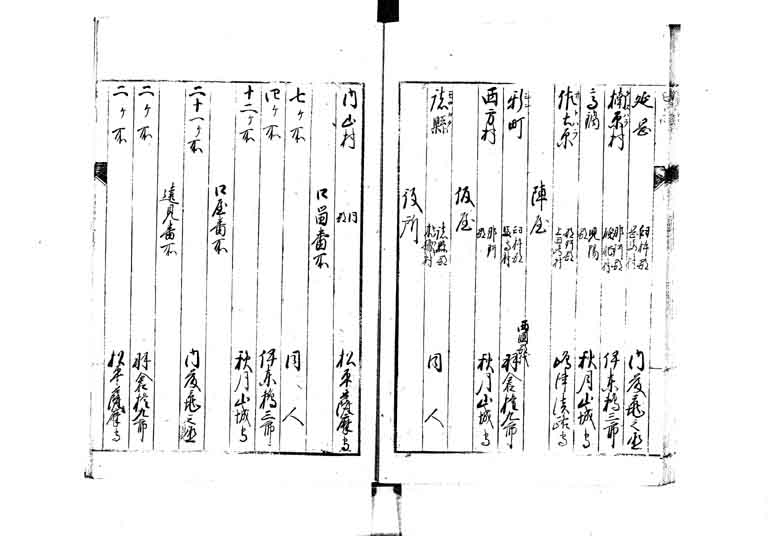 延岡 臼杵郡 岡山村 内藤飛之丞
楠原村 那珂郡 伊東橋三郎
高鍋 児湯郡 秋月山城守
佐土原 那珂郡 嶋津淡路守
陣屋
新町 臼杵郡 西国郡代 羽倉権九郎
西方村 那珂郡 秋月山城守
仮屋
諸縣 諸縣郡 同人
役所
内山村 同郡 松平薩摩守
口留番所
七ヶ所 同人
四ヶ所 伊東橋三郎
十二ヶ所 秋月山城守
口屋番所
二十一ヶ所 内藤飛之丞
遠見番所
二ヶ所 羽倉権九郎
二ヶ所 松平薩摩守